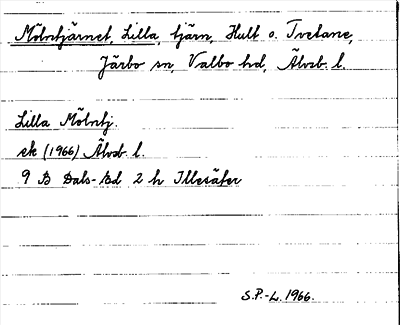 Mölntjärnet, Lilla, tjärn, Hult o. Tvetane,
Järbo sn, Valbo hd, Älvsb. l.
Lilla Mölntj.
ek (1966) Älvsb. l.
9 B Dals-Ed 2 h Illesäter
S.P.-L. 1966.